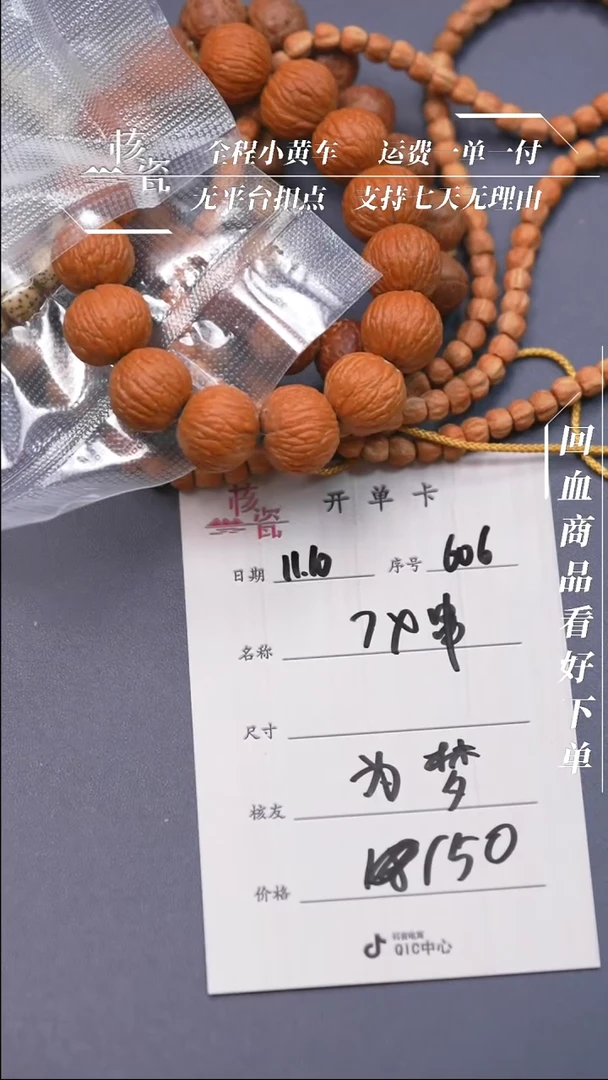 核瓷
全程小黄车 运费一单一付
无平台扣点 支持七天无理由
回血商品看好下单
核瓷
开单卡
日期 11.10 序号 606
名称
尺寸
核友 为梦
价格 150
抖音电商
QIC中心